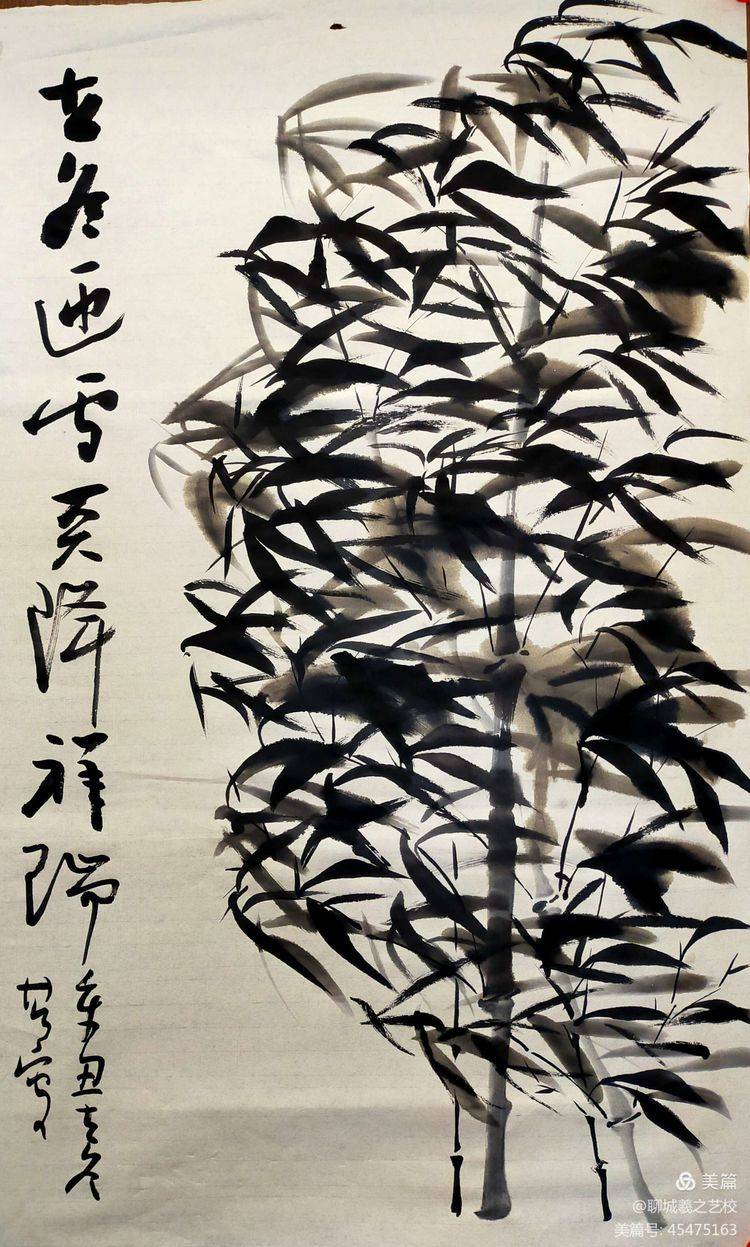 立冬迎雪降祥瑞
辛丑立冬
写
美篇
@聊城羲之艺校
美篇号: 45475163